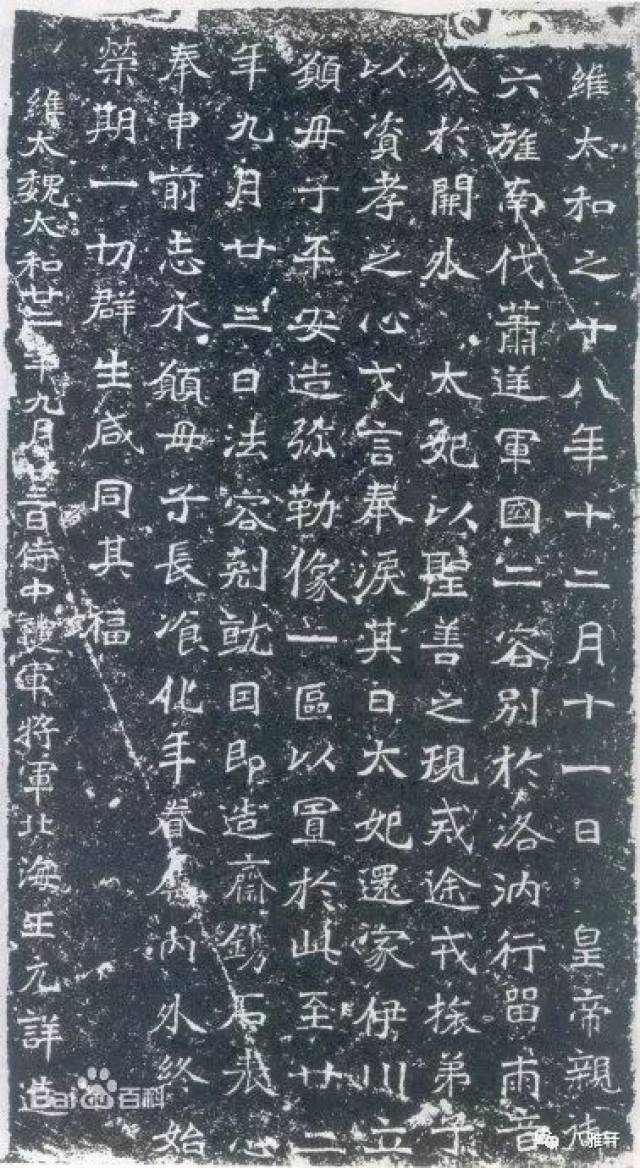 維太和之十八年十二月十一日 皇帝親御
六旌南伐蕭逆軍國二容別於洛汭行留兩音
分於闕外 太妃以聖善之規戒途戎旅弟子
以資孝之心戈言奉淚其日太妃還家伊川立
願母子平安造弥勒像一區以置於此至廿二
年九月廿三日法容剋就因即造齋鐫石表心
奉申前志永願母子長飡化年眷屬內外終始
榮期一切群生咸同其福
維太魏太和廿二年九月廿三日侍中護軍將軍北海王元詳造
Bai du 百科
八雅轩